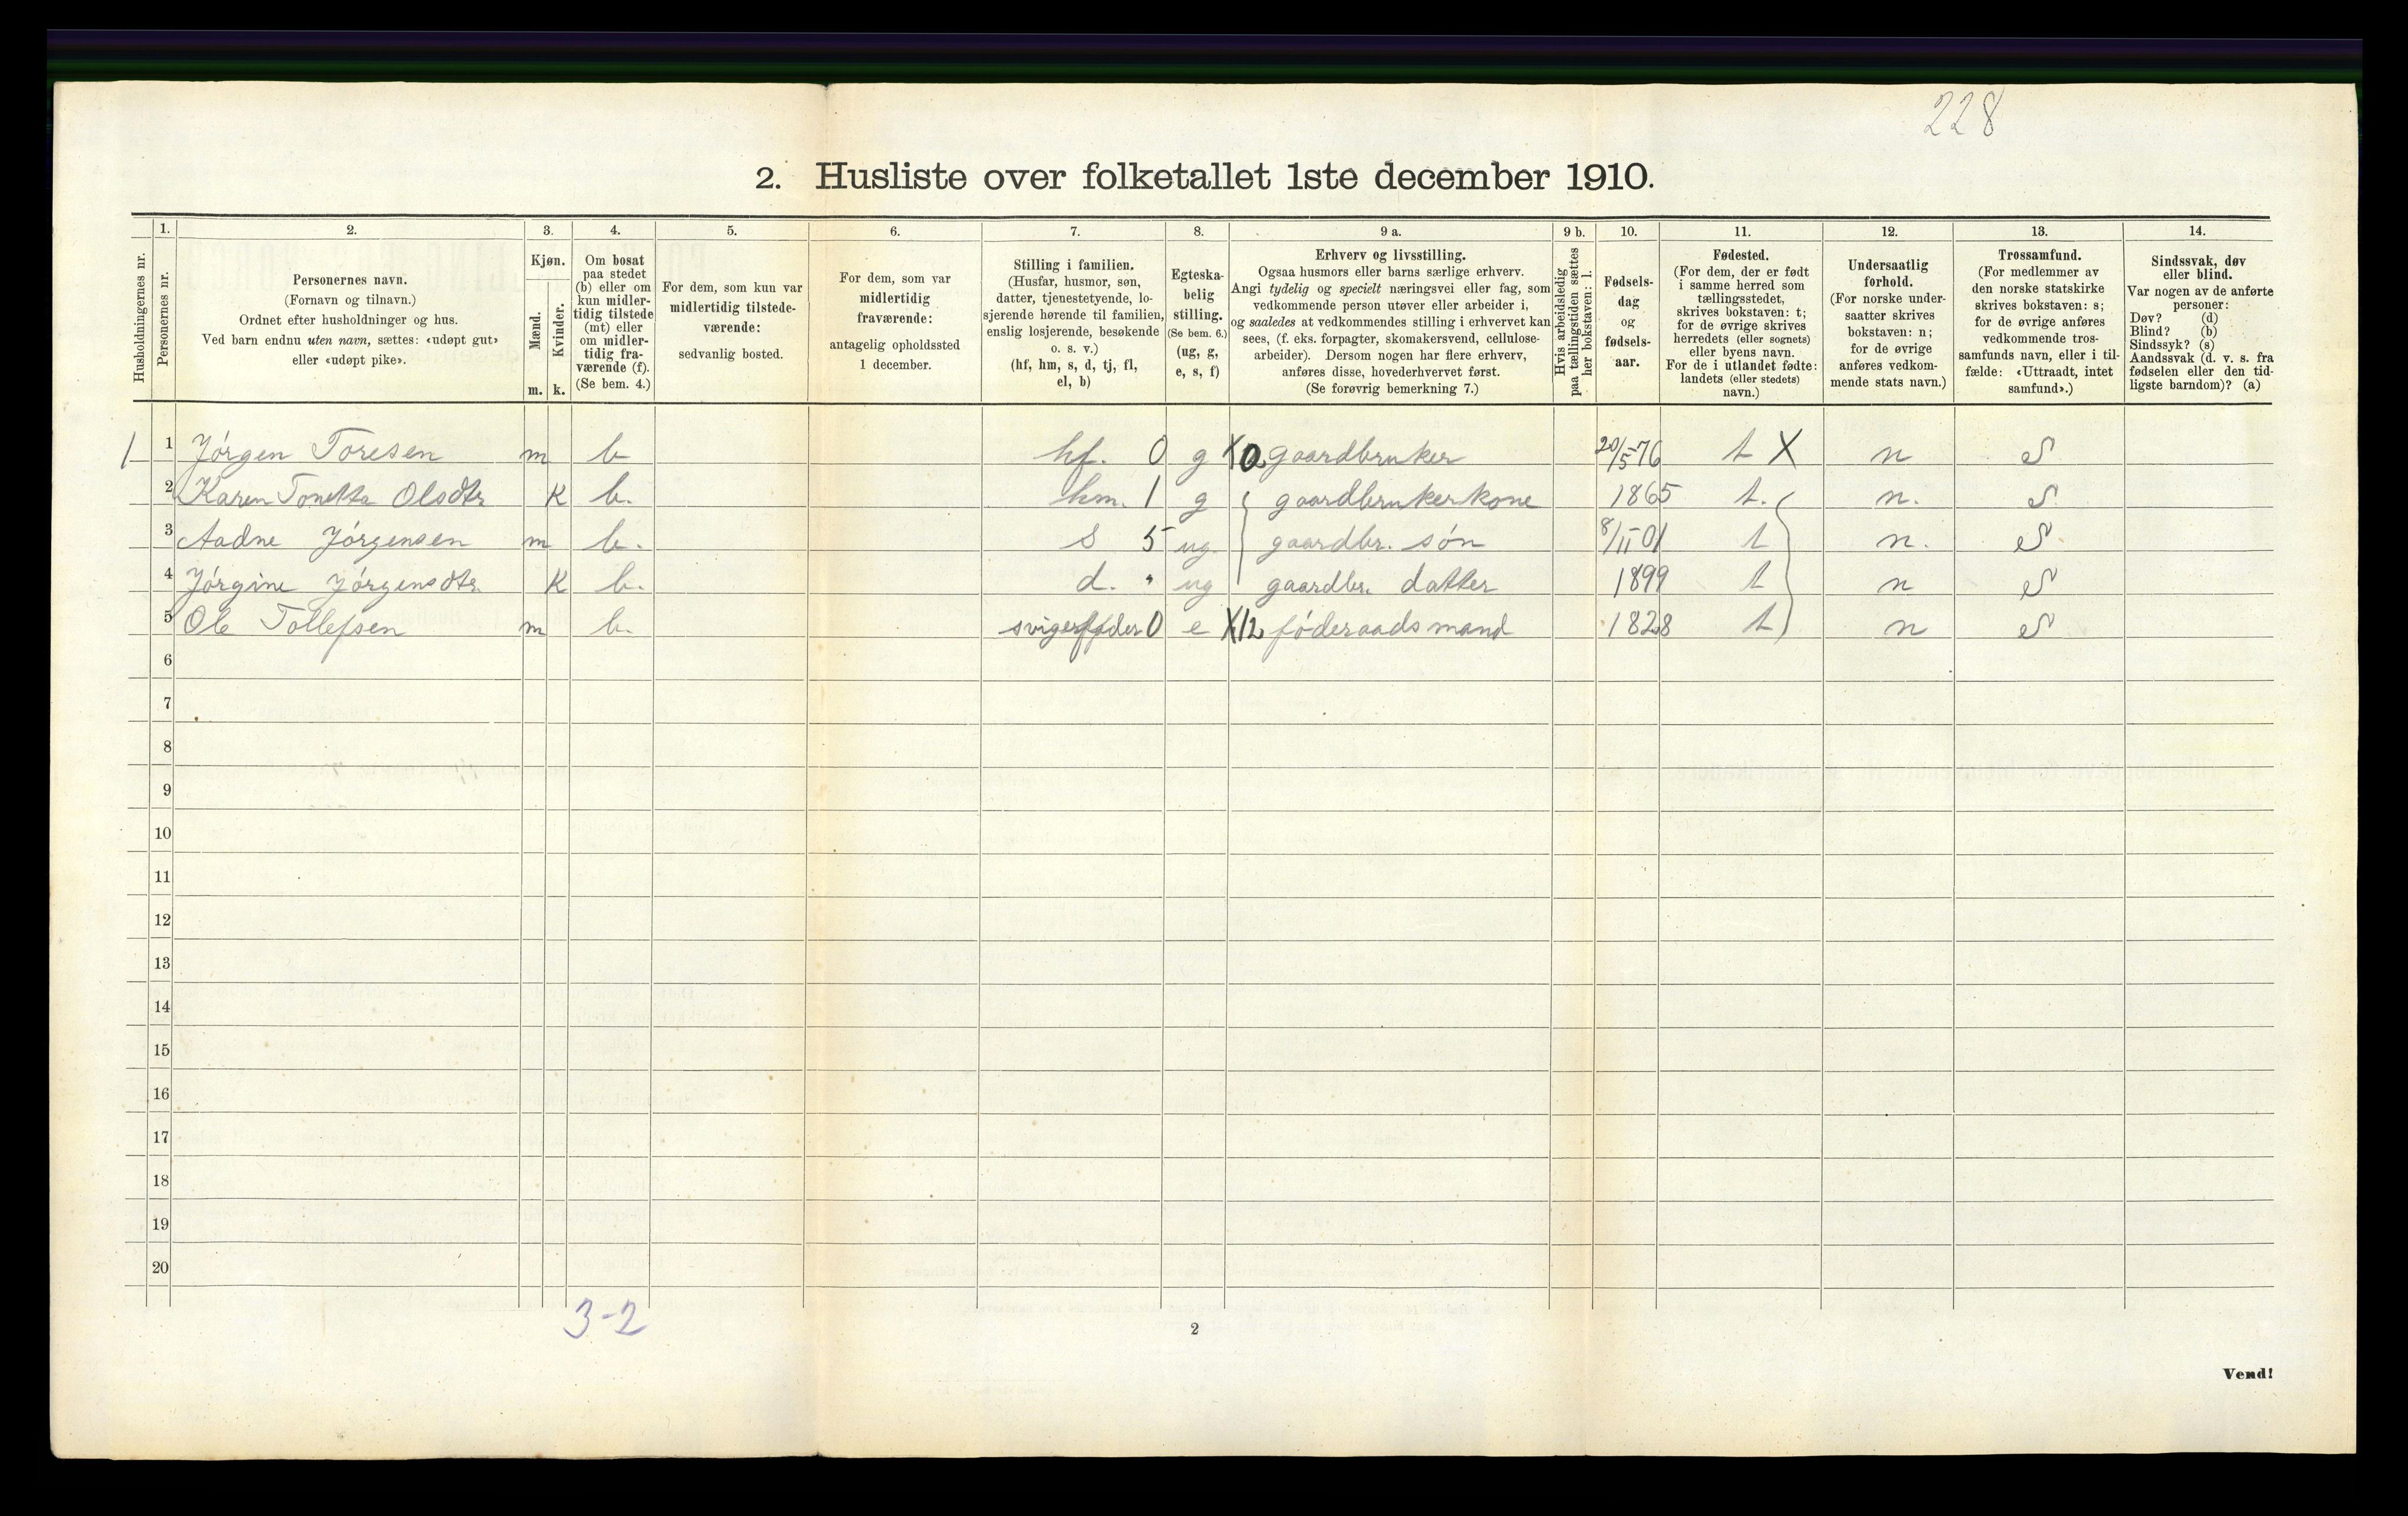 228
2. Husliste over folketallet 1ste december 1910.
Husholdningernes nr.
1.
Personernes nr.
2.
Personernes navn.
(Fornavn og tilnavn.)
Ordnet efter husholdninger og hus.
Ved barn endnu uten navn, sættes: «udøpt gut»
eller «udøpt pike».
3.
Kjøn.
Mænd.
m.
Kvinder.
k.
4.
Om bosat
paa stedet
(b) eller om
kun midler-
tidig tilstede
(mt) eller
om midler-
tidig fra-
værende (f).
(Se bem. 4.)
5.
For dem, som kun var
midlertidig tilstede-
værende:
sedvanlig bosted.
6.
For dem, som var
midlertidig
fraværende:
antagelig opholdssted
1 december.
7.
Stilling i familien.
(Husfar, husmor, søn,
datter, tjenestetyende, lo-
sjerende hørende til familien,
enslig losjerende, besøkende
o. s. v.)
(hf, hm, s, d, tj, fl,
el, b)
8.
Egteska-
belig
stilling.
(Se bem. 6.)
(ug, g,
e, s, f)
9 a.
Erhverv og livsstilling.
Ogsaa husmors eller barns særlige erhverv.
Angi tydelig og specielt næringsvei eller fag, som
vedkommende person utøver eller arbeider i,
og saaledes at vedkommendes stilling i erhvervet kan
sees, (f. eks. forpagter, skomakersvend, cellulose-
arbeider). Dersom nogen har flere erhverv,
anføres disse, hovederhvervet først.
(Se forøvrig bemerkning 7.)
9 b.
Hvis arbeidsledig
paa tællingstiden sættes
her bokstaven: l.
10.
Fødsels-
dag
og
fødsels-
aar.
11.
Fødested.
(For dem, der er født
i samme herred som
tællingsstedet,
skrives bokstaven: t;
for de øvrige skrives
herredets (eller sognets)
eller byens navn.
For de i utlandet fødte:
landets (eller stedets)
navn.)
12.
Undersaatlig
forhold.
(For norske under-
saatter skrives
bokstaven: n;
for de øvrige
anføres vedkom-
mende stats navn.)
13.
Trossamfund.
(For medlemmer av
den norske statskirke
skrives bokstaven: s;
for de øvrige anføres
vedkommende tros-
samfunds navn, eller i til-
fælde: «Uttraadt, intet
samfund».)
14.
Sindssvak, døv
eller blind.
Var nogen av de anførte
personer:
Døv? (d)
Blind? (b)
Sindssyk? (s)
Aandssvak (d. v. s. fra
fødselen eller den tid-
ligste barndom)? (a)
1 1 Jórgen Toresen m b hf. 0 g X 0 gaardbruker 20/5-76 t X n S
2 Karen Tonetta Olsdtr. K b. hm. 1 g gaardbrukerkone 1865 t. n. S
3 Aadne Jórgensen m b. S 5 ug. gaardbr. són 8/11-01 t n. S
4 Jórgine Jórgensdtr. K b. d. " ug gaardbr. datter 1899 t n S
5 Ole Tollefsen m b. svigerfader 0 e X12 fóderaadsmand 1828 t n S
6
7
8
9
10
11
12
13
14
15
16
17
18
19
20
3-2
2
Vend!